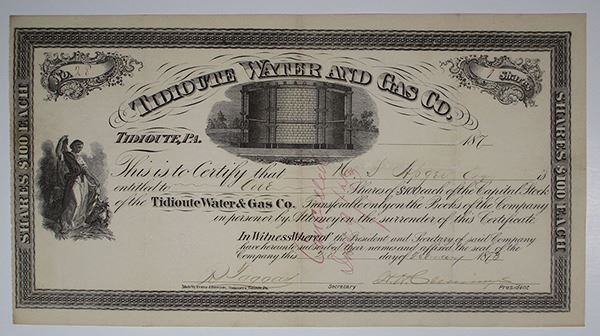 No. 28
1 Shares
TIDIOUTE WATER AND GAS CO.
SHARES $100 EACH
SHARES $100 EACH
TIDIOUTE, PA. 187
This is to Certify that is
entitled to One Shares of $100 each of the Capital Stock
of the Tidioute Water & Gas Co. Transferable only on the Books of the Company
in person or by Attorney on the surrender of this Certificate.
In Witness Whereof the President and Secretary of said Company
have hereunto subscribed their names and affixed the seal of the
Company this day of February 187
Secretary
President
Cancelled